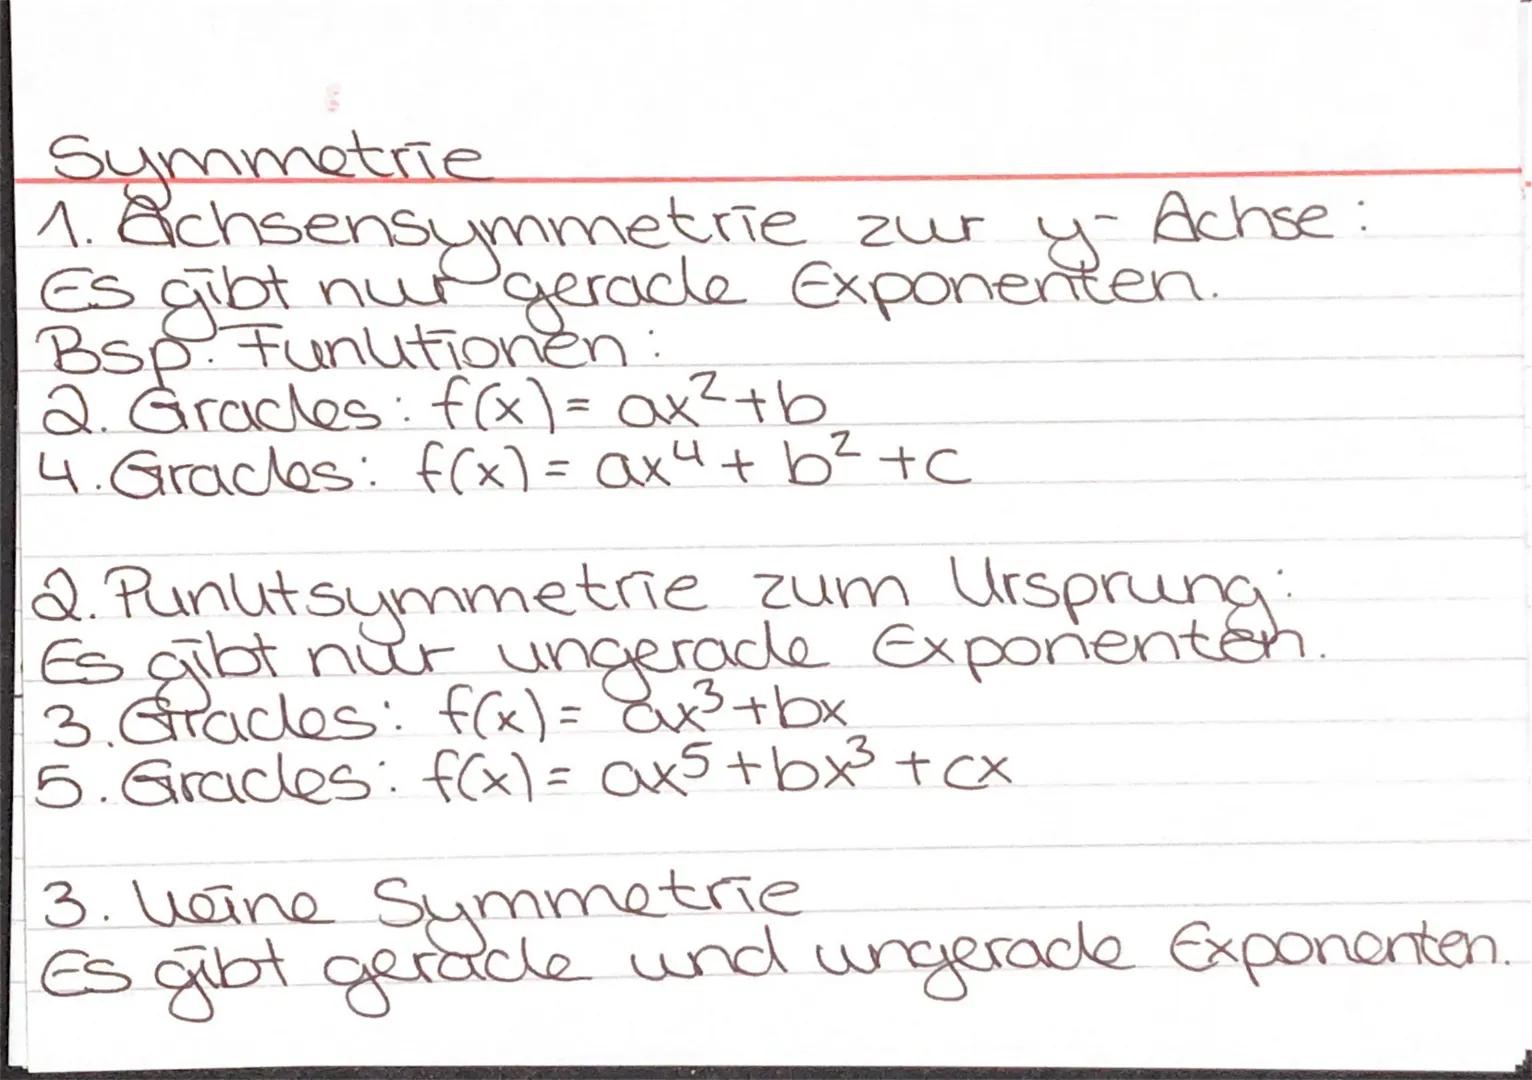 Symmetrie
1. Achsensymmetrie zur y-Achse:
Es gibt nur gerade Exponenten.
Bsp. Funktionen:
2. Grades: f(x) = ax²+b
4. Grades: f(x) = ax⁴ + b² + c
2. Punktsymmetrie zum Ursprung:
Es gibt nur ungerade Exponenten.
3. Grades: f(x) = ax³+bx
5. Grades: f(x) = ax⁵ + bx³ + cx
3. Keine Symmetrie
Es gibt gerade und ungerade Exponenten.